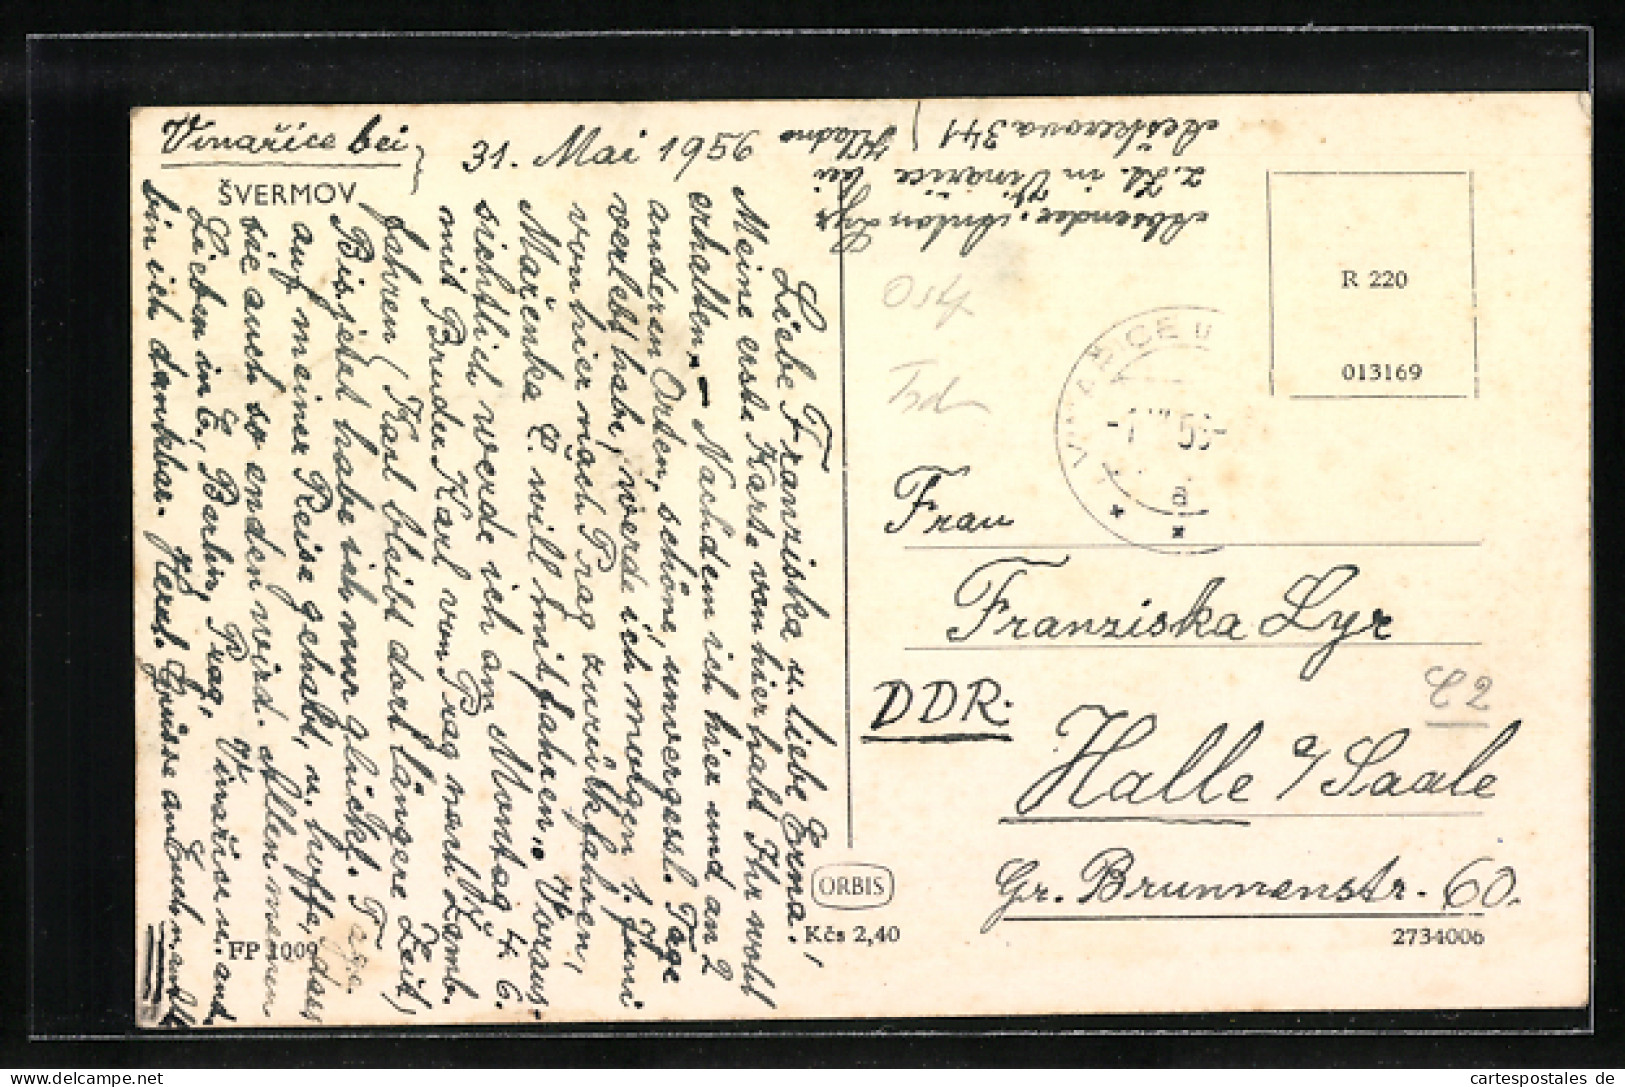 Vinařice bei
ŠVERMOV
31. Mai 1956
Absender: Anton Lyr
z. Zt. in Vinařice bei Kladno
Neškerova 341
Liebe Franziska u. liebe Erma!
Meine erste Karte von hier habt Ihr wohl
erhalten. – Nachdem ich hier und an 2
anderen Orten, schöne, unvergessl. Tage
verlebt habe, werde ich morgen 1. Juni
von hier nach Prag zurückfahren,
Mařenka C. will mitfahren. Voraus-
sichtlich werde ich am Montag 4. 6.
mit Bruder Karl von Prag nach Žamb.
fahren (Karl bleibt dort längere Zeit)
Bis jetzt habe ich nur glückl. Tage
auf meiner Reise gehabt, u. hoffe, dass
sie auch so enden wird. Allen meinen
Lieben in E., Berlin, Prag, Vinařice u. and.
bin ich dankbar. Herzl. Grüsse an Euch
FP 1009
ORBIS
Kčs 2,40
R 220
013169
VINAŘICE U
a
Frau
Franziska Lyr
DDR.
Halle a/Saale
Gr. Brunnenstr. 60.
2734006
cartespostales de